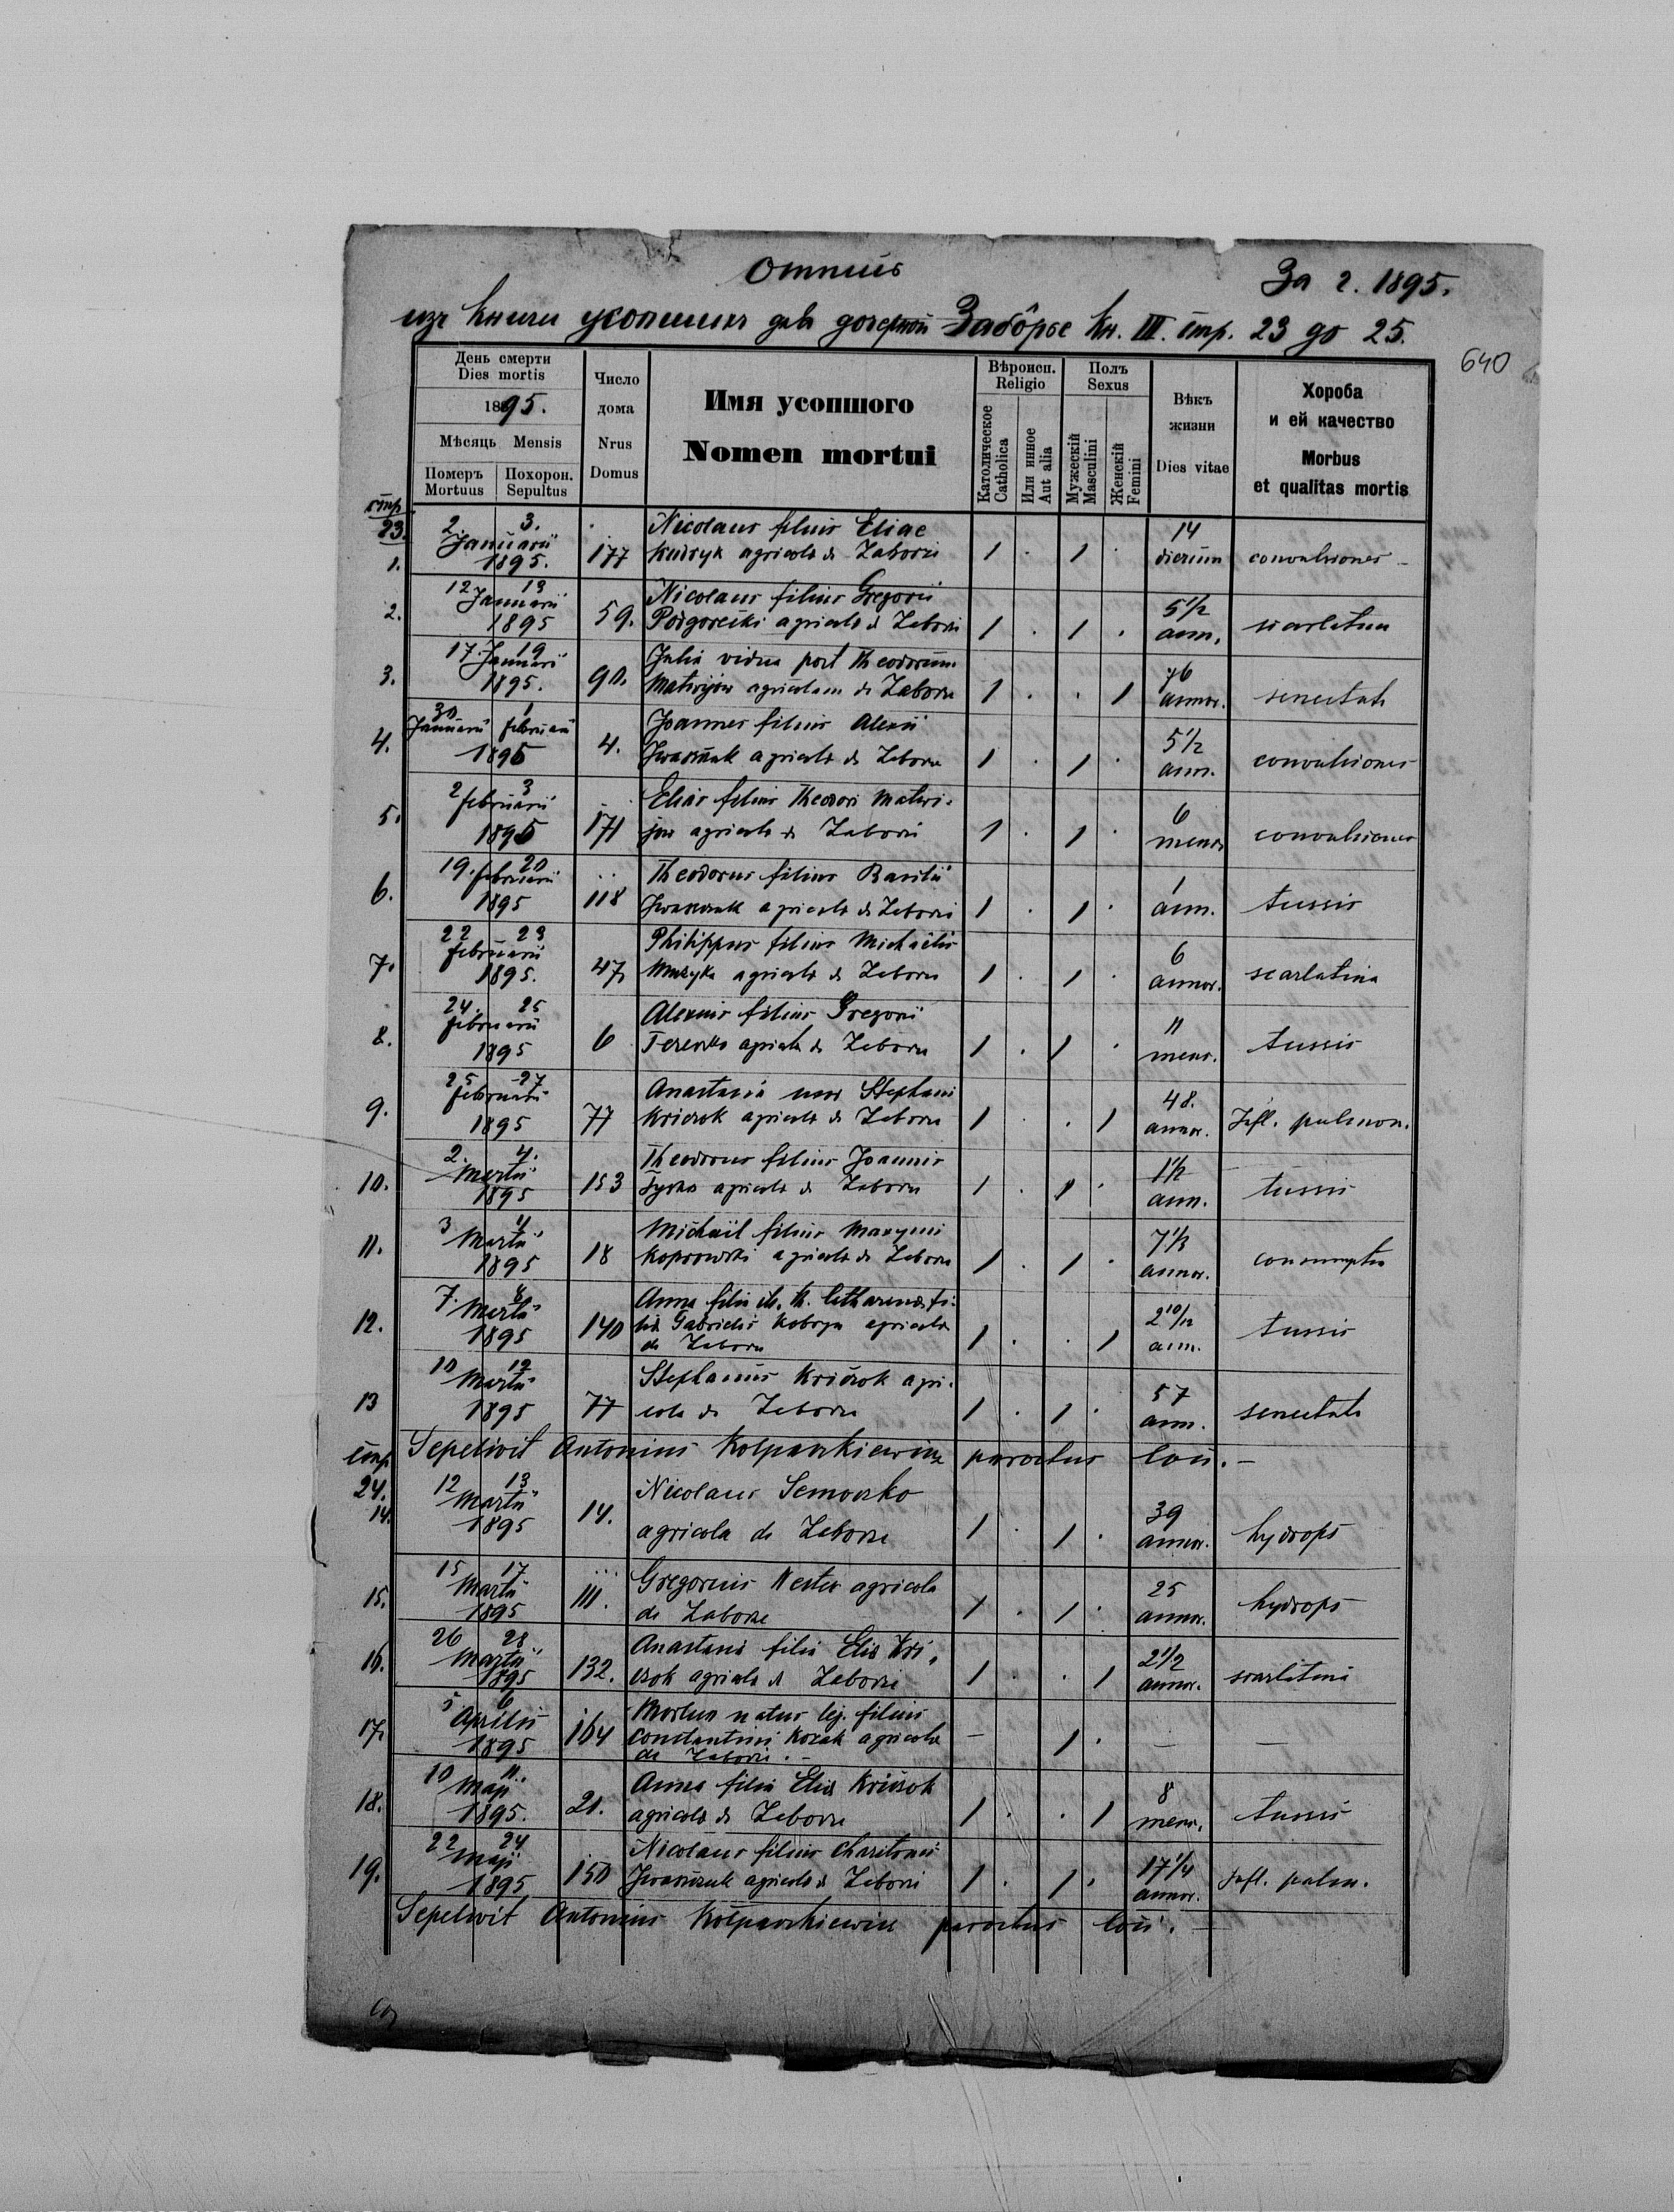 Отпись
За г. 1895.
изъ книги усопшихъ для дочерной Забôрье кн. III. стр. 23 до 25.
640
День смерти
Dies mortis
1895.
Мѣсяць Mensis
Померъ Похорон.
Mortuus Sepultus
Число
дома
Nrus
Domus
Имя усопшого
Nomen mortui
Вѣроисп.
Religio
Католическое
Catholica
Или инное
Aut alia
Полъ
Sexus
Мужескій
Masculini
Женскій
Femini
Вѣкъ
жизни
Dies vitae
Хороба
и ей качество
Morbus
et qualitas mortis
стр
23.
1. 2. 3. Januarii 1895. 177 Nicolaus filius Eliae
Kudryk agricola de Zaborze 1 . 1 . 14 dierum convulsiones
2. 12 13 Januarii 1895 59. Nicolaus filius Gregorii
Podgorecki agricola de Zaborze 1 . 1 . 5 1/2 ann. scarlatina
3. 17. 19 Januarii 1895. 90. Julia vidua post Theodorum
Matwijów agricolam de Zaborze 1 . . 1 76 annor. senectute
4. 30 Januarii 1 februarii 1895 4. Joannes filius Alexii
agricola de Zaborze 1 . 1 . 5 1/2 ann. convulsiones
5. 2 3 februarii 1895 171 Elias filius Theodori Matwi-
jow agricola de Zaborze 1 . 1 . 6 mens convulsiones
6. 19. 20 februarii 1895 118 Theodorus filius Basilii
agricola de Zaborze 1 . 1 . 1 ann. tussis
7. 22 23 februarii 1895. 47 Philippus filius Michaelis
Muzyka agricola de Zaborze 1 . 1 . 6 annor. scarlatina
8. 24. 25 februarii 1895 6 Alexius filius Gregorii
agricola de Zaborze 1 . 1 . 11 mens. tussis
9. 25 27 februarii 1895 77 Anastasia uxor Stephani
Kriczok agricola de Zaborze 1 . . 1 48. annor. Infl. pulmon.
10. 2. 4. Martii 1895 153 Theodorus filius Joannis
agricola de Zaborze 1 . 1 . 1 1/2 ann. tussis
11. 3 4 Martii 1895 18 Michail filius Maxymi
Koprowski agricola de Zaborze 1 . 1 . 7 1/3 annor. consumptio
12. 7. 8 Martii 1895 140 Anna filia Catharinae fi-
lia Gabrielis Kobryn agricola
de Zaborze 1 . . 1 2 10/12 ann. tussis
13 10 12 Martii 1895 77 Stephanus Kriczok agri-
cola de Zaborze 1 . 1 . 57 ann. senectute
Sepelivit Antonius Kolpaczkiewicz parochus loci. –
стр
24.
14. 12 13 Martii 1895 14. Nicolaus Semoczko
agricola de Zaborze 1 . 1 . 39 annor. hydrops
15. 15 17 Martii 1895 111. Gregorius Nester agricola
de Zaborze 1 . 1 . 25 annor. hydrops
16. 26 28 Martii 1895 132. Anastasia filia Eliae Kri-
czok agricola de Zaborze 1 . . 1 2 1/2 annor. scarlatina
17. 5 6 Aprilis 1895 164 Mortuus natus leg. filius
Constantini Kozak agricola
de Zaborze. – – 1 . – –
18. 10 11. Maji 1895. 21. Anna filia Eliae Kriczok
agricola de Zaborze 1 . . 1 8 mens. tussis
19. 22 24 Maji 1895 150 Nicolaus filius Charitonis
agricola de Zaborze 1 . 1 . 17 1/4 annor. Infl. pulm.
Sepelivit Antonius Kolpaczkiewicz parochus loci. –